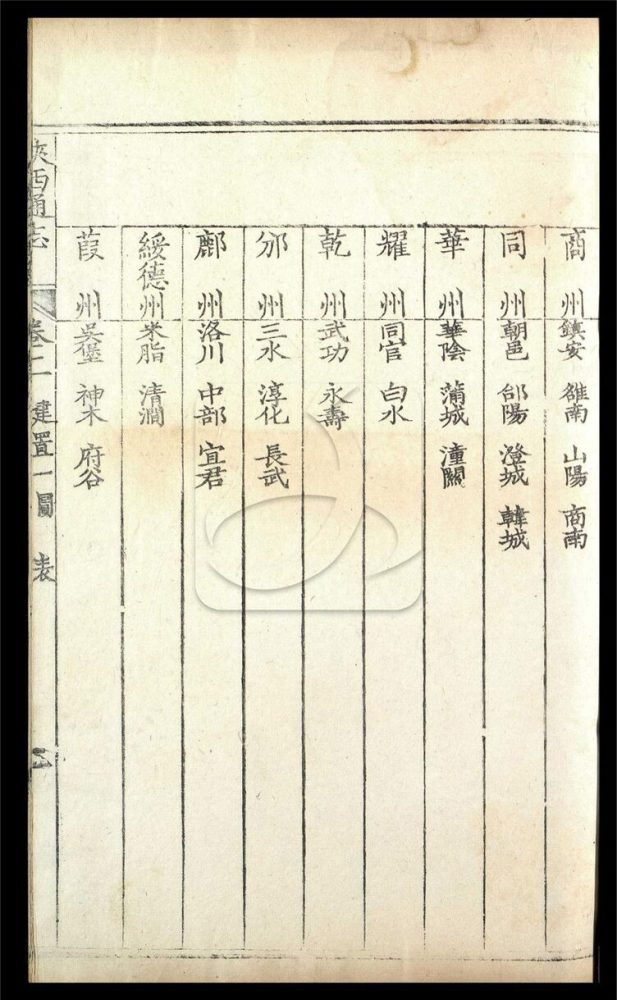 商州 鎮安 雒南 山陽 商南
同州 朝邑 郃陽 澄城 韓城
華州 華陰 蒲城 潼關
耀州 同官 白水
乾州 武功 永壽
邠州 三水 淳化 長武
鄜州 洛川 中部 宜君
綏德州 米脂 清澗
葭州 吳堡 神木 府谷
陝西通志 卷二 建置一圖 表